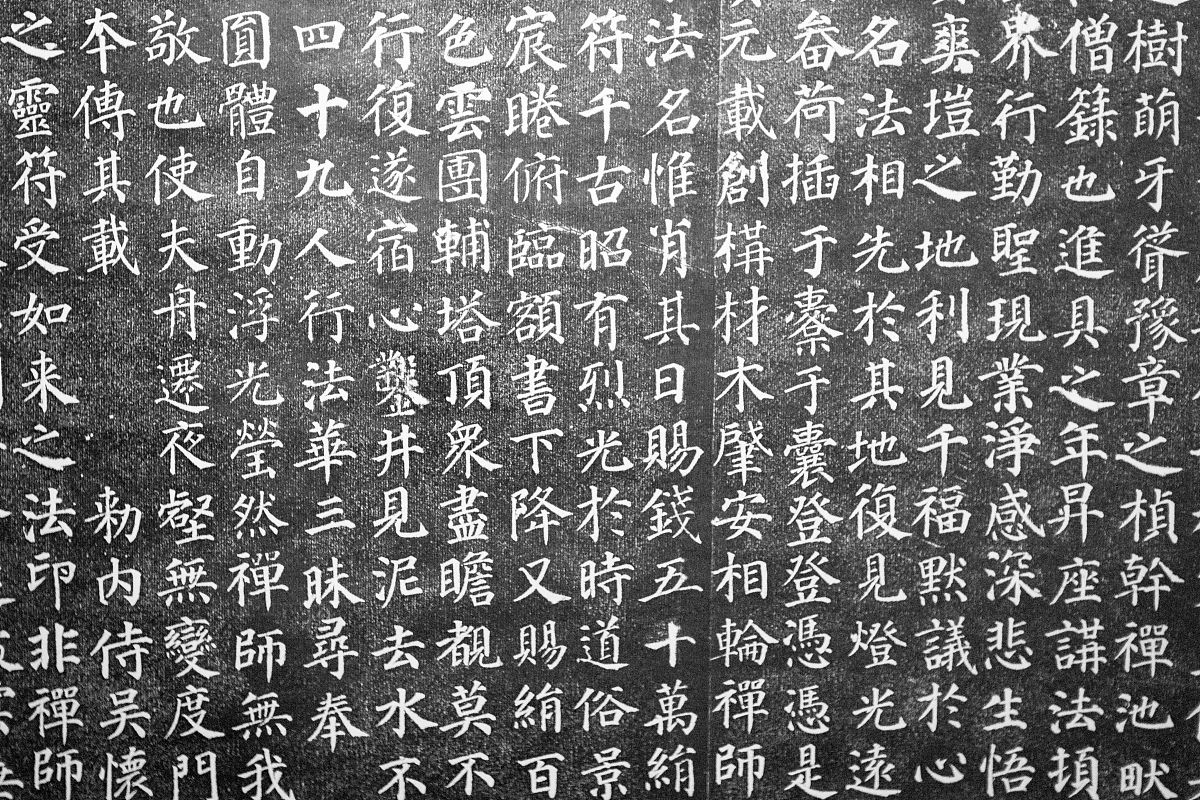 樹萌牙聳豫章之楨幹禪池畎
僧籙也進具之年昇座講法頂
界行勤聖現業淨感深悲生悟
爽塏之地利見千福默議於心
名法相先於其地復見燈光遠
畚荷插于橐于囊登登憑憑是
元載創構材木肇安相輪禪師
法名惟肖其日賜錢五十萬絹
符千古昭有烈光於時道俗景
宸睠俯臨額書下降又賜絹百
色雲團輔塔頂衆盡瞻覩莫不
行復遂宿心鑿井見泥去水不
四十九人行法華三昧尋奉
圓體自動浮光瑩然禪師無我
敬也使夫舟遷夜壑無變度門
本傳其載 勑内侍吴懷
之靈符受如来之法印非禪師